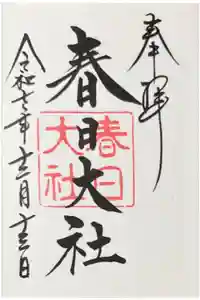 奉拝
春日大社
春日
大社
令和七年十二月十三日